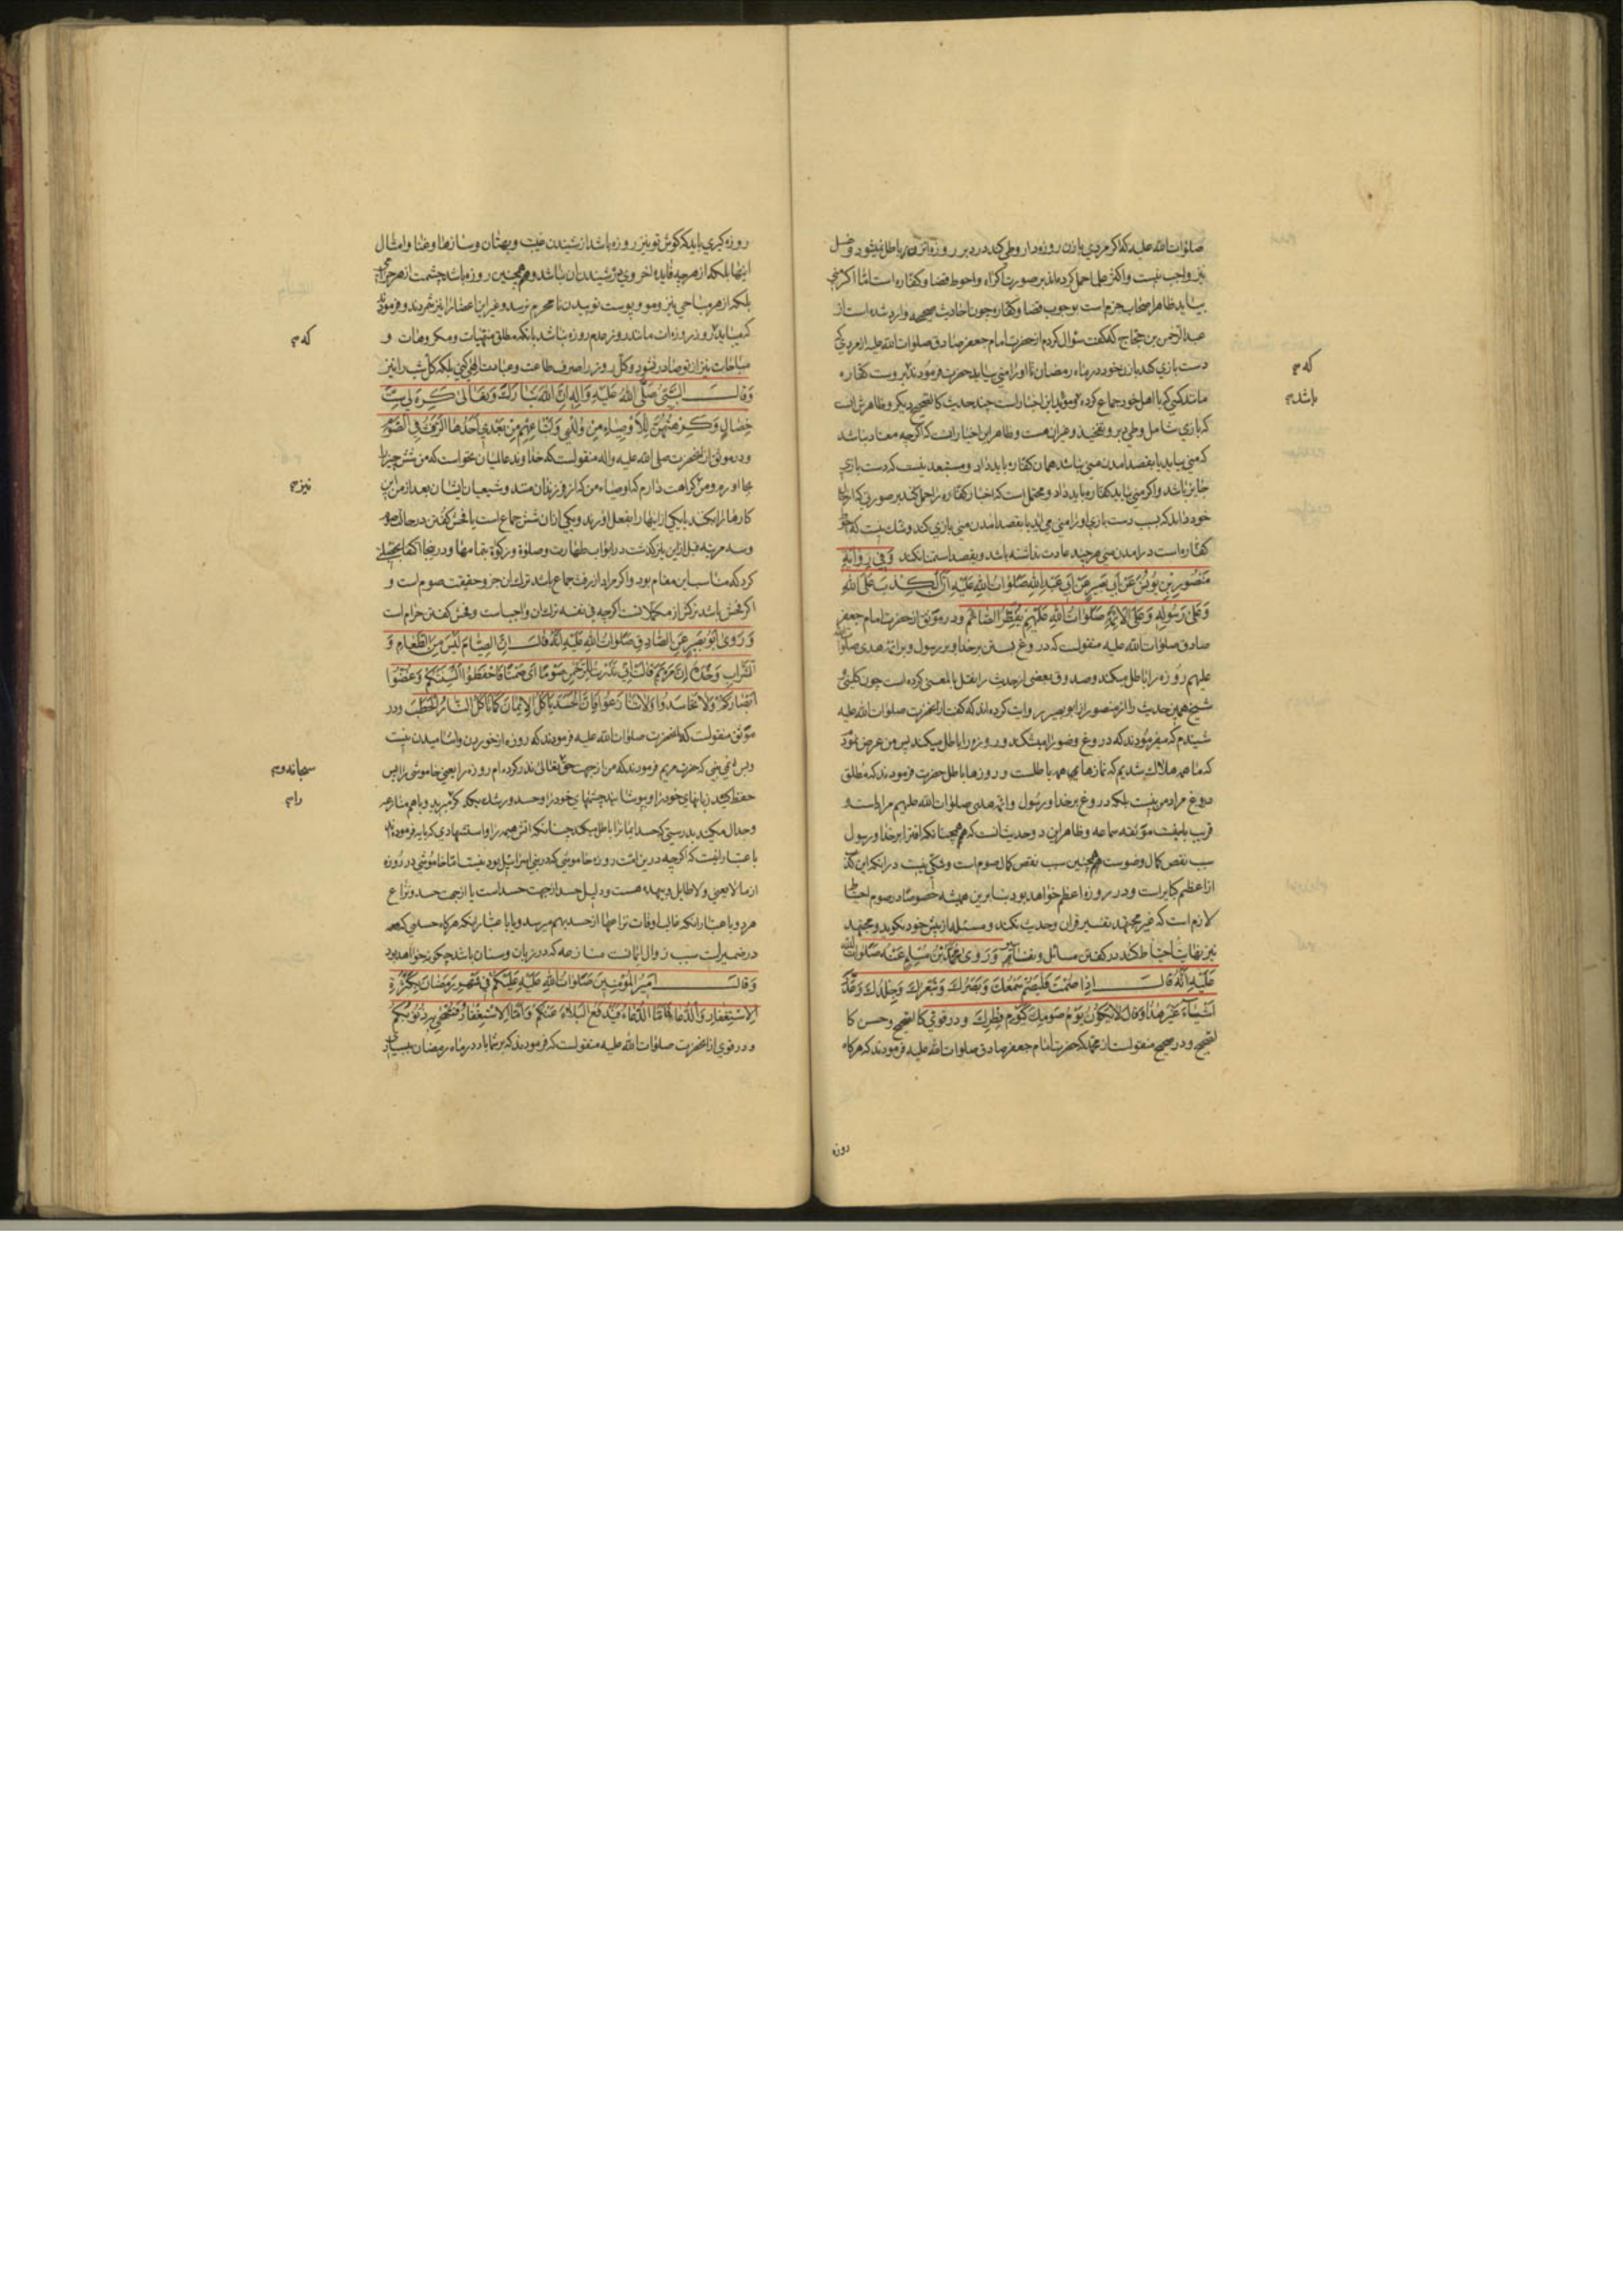 صلوات الله علیه که اگر مردی با زن روزه‌دار وطی کند در دبر روزه آن زن باطل نمیشود و غسل
نیز واجب نیست و اکثر علما حمل کرده‌اند بر صورت اکراه و احوط قضا و کفاره است اما اگر منی
بیاید ظاهر اصحاب جزم است بوجوب قضا و کفاره چون احادیث صحیحه وارد شده است از
عبدالرحمن بن حجاج که گفت سؤال کردم از حضرت امام جعفر صادق صلوات الله علیه از مردی که
دست بازی کند با زن خود در ماه رمضان تا او را منی بیاید حضرت فرمودند بروست کفاره
مانند کسی که با اهل خود جماع کرده و مؤید این اخبار است چند حدیث کالصحیح دیگر و ظاهرش آنست
که بازی شامل وطی دبر و تفخیذ و غیر آن هست و ظاهر این اخبار آنست که اگرچه معتاد نباشد
که منی بیاید یا بقصد آمدن منی نباشد همان کفاره باید داد و مستبعد نیست که دست بازی
جایز باشد و اگر منی بیاید کفاره باید داد و محتمل است که اخبار کفاره را حمل کنند بر صورتی که از حال
خود داند که بسبب دست بازی او را منی می‌آید یا بقصد آمدن منی بازی کند و شک نیست که احوط
کفاره است در آمدن منی هرچند عادت نداشته باشد و بقصد استمنا نکند وَفِي رِوَايَةِ
مَنْصُورِ بْنِ يُونُسَ عَنْ أَبِي بَصِيرٍ عَنْ أَبِي عَبْدِ اللهِ صَلَوَاتُ اللهِ عَلَيْهِ أَنَّ الْكَذِبَ عَلَى اللهِ
وَعَلَى رَسُولِهِ وَعَلَى الأَئِمَّةِ صَلَوَاتُ اللهِ عَلَيْهِمْ يُفَطِّرُ الصَّائِمَ و در موثق از حضرت امام جعفر
صادق صلوات الله علیه منقولست که دروغ بستن بر خدا و بر رسول و بر ائمه هدی صلوات الله
علیهم روزه را باطل میکند و صدوق بعضی از حدیث را نقل بالمعنی کرده است چون کلینی و
شیخ همین حدیث را از منصور از ابو بصیر روایت کرده‌اند که گفت از آنحضرت صلوات الله علیه
شنیدم که میفرمودند که دروغ وضو را میشکند و روزه را باطل میکند پس من عرض نمودم
که ما همه هلاک شدیم که نمازهای همه باطلست و روزها باطل حضرت فرمودند که مطلق
دروغ مراد من نیست بلکه دروغ بر خدا و رسول و ائمه هدی صلوات الله علیهم مراد است و
قریب باینست موثقه سماعه و ظاهر این دو حدیث آنست که همچنانکه افترا بر خدا و رسول
سبب نقص کمال وضوست همچنین سبب نقص کمال صوم است و شکی نیست در آنکه این کذب
از اعظم کبایر است و در روزه اعظم خواهد بود بنابرین همیشه خصوصا در صوم احتیاط
لازم است که غیر مجتهد تفسیر قرآن و حدیث نکند و مسئله از پیش خود نگوید و مجتهد
نیز نهایت احتیاط کند در گفتن مسائل و نقل آنها وَرَوَى مُحَمَّدُ بْنُ مُسْلِمٍ عَنْهُ صَلَوَاتُ اللهِ
عَلَيْهِ أَنَّهُ قَالَ إِذَا صُمْتَ فَلْيَصُمْ سَمْعُكَ وَبَصَرُكَ وَشَعْرُكَ وَجِلْدُكَ وَعَدَّ
أَشْيَاءَ غَيْرَ هَذَا وَقَالَ لاَ يَكُونُ يَوْمُ صَوْمِكَ كَيَوْمِ فِطْرِكَ و در قوی کالصحیح و حسن کا
لصحیح و در صحیح منقولست از محمد که حضرت امام جعفر صادق صلوات الله علیه فرمودند که هرگاه
روزه
که م
باشد م
روزه گیری باید که گوش تو نیز روزه باشد از شنیدن غیبت و بهتان و سازها و غنا و امثال
اینها بلکه از هرچه فایده اخروی در شنیدن آن نباشد و همچنین روزه باشد چشمت از هر حرامی
بلکه از هر مباحی نیز و مو و پوست تو ببدن نامحرم نرسد و غیر این اعضا را نیز شمردند و فرمودند
که میباید روز روزه‌ات مانند روز عدم روزه نباشد بآنکه مطلق منهیات و مکروهات و
مباحات نیز از تو صادر نشود و کل روز را صرف طاعت و عبادت الهی کنی بلکه کل شب را نیز
وَقَالَ النَّبِيُّ صَلَّى اللهُ عَلَيْهِ وَآلِهِ إِنَّ اللهَ تَبَارَكَ وَتَعَالَى كَرِهَ لِي سِتَّ
خِصَالٍ وَكَرِهْتُهُنَّ لِلأَوْصِيَاءِ مِنْ وُلْدِي وَأَتْبَاعِهِمْ مِنْ بَعْدِي أَحَدُهَا الرَّفَثُ فِي الصَّوْمِ
و در موثق از آنحضرت صلی الله علیه و آله منقولست که خداوند عالمیان نخواست که من شش چیز را
بجا آورم و من کراهت دارم که اوصیاء من که از فرزندان منند و شیعیان ایشان بعد از من این
کارها را بکنند یا یکی از اینها را بفعل آورند و یکی از آن شش جماع است یا فحش گفتن در حالت صوم
و سه مرتبه قبل از این باز گذشت در ابواب طهارت و صلوة و زکوة بتمامها و در اینجا اکتفا بخصلتی
کرد که مناسب این مقام بود و اگر مراد از رفث جماع باشد ترک آن جزو حقیقت صوم است و
اگر فحش باشد ترکش از مکملاتست اگرچه فی نفسه ترک آن واجبست و فحش گفتن حرام است
وَرَوَى أَبُو بَصِيرٍ عَنِ الصَّادِقِ صَلَوَاتُ اللهِ عَلَيْهِ أَنَّهُ قَالَ إِنَّ الصِّيَامَ لَيْسَ مِنَ الطَّعَامِ وَ
الشَّرَابِ وَحْدَهُ إِنَّ مَرْيَمَ قَالَتْ إِنِّي نَذَرْتُ لِلرَّحْمَنِ صَوْمًا أَيْ صَمْتًا فَاحْفَظُوا أَلْسِنَتَكُمْ وَغُضُّوا
أَبْصَارَكُمْ وَلاَ تَحَاسَدُوا وَلاَ تَنَازَعُوا فَإِنَّ الْحَسَدَ يَأْكُلُ الإِيمَانَ كَمَا تَأْكُلُ النَّارُ الْحَطَبَ و در
موثق منقولست که آنحضرت صلوات الله علیه فرمودند که روزه از خوردن و آشامیدن نیست
و بس نمی‌بینی که حضرت مریم فرمودند که من از جهت حق تعالی نذر کرده‌ام روزه را یعنی خاموشی را پس
حفظ کنید زبانهای خود را و بپوشانید چشمهای خود را و حسد و رشک بیکدیگر مبرید و با هم منازعه
و جدال مکنید بدرستی که حسد ایمان را باطل میکند چنانکه آتش هیمه را و استشهادی که بآیه فرمودند
باعتبار اینست که اگرچه درین امت روزه خاموشی که در بنی اسرائیل بود نیست اما خاموشی در روزه
از مالایعنی و لاطایل و بیهده هست و دلیل حسد از جهت حسد است یا از جهت حسد و نزاع
هر دو باعتبار آنکه غالب اوقات نزاعها از حسد بهم میرسد و یا باعتبار آنکه هرگاه حسدی که همه
در ضمیر است سبب زوال ایمانست منازعه که در زبان و سنان باشد چگونه خواهد بود
وَقَالَ أَمِيرُ الْمُؤْمِنِينَ صَلَوَاتُ اللهِ عَلَيْهِ عَلَيْكُمْ فِي شَهْرِ رَمَضَانَ بِكَثْرَةِ
الاِسْتِغْفَارِ وَالدُّعَاءِ فَأَمَّا الدُّعَاءُ فَيُدْفَعُ الْبَلاَءُ عَنْكُمْ وَأَمَّا الاِسْتِغْفَارُ فَتُمْحَى بِهِ ذُنُوبُكُمْ
و در قوی از آنحضرت صلوات الله علیه منقولست که فرمودند که بر شما باد در ماه رمضان ببسیاری
که م
نیز م
سبحانه و م
را م